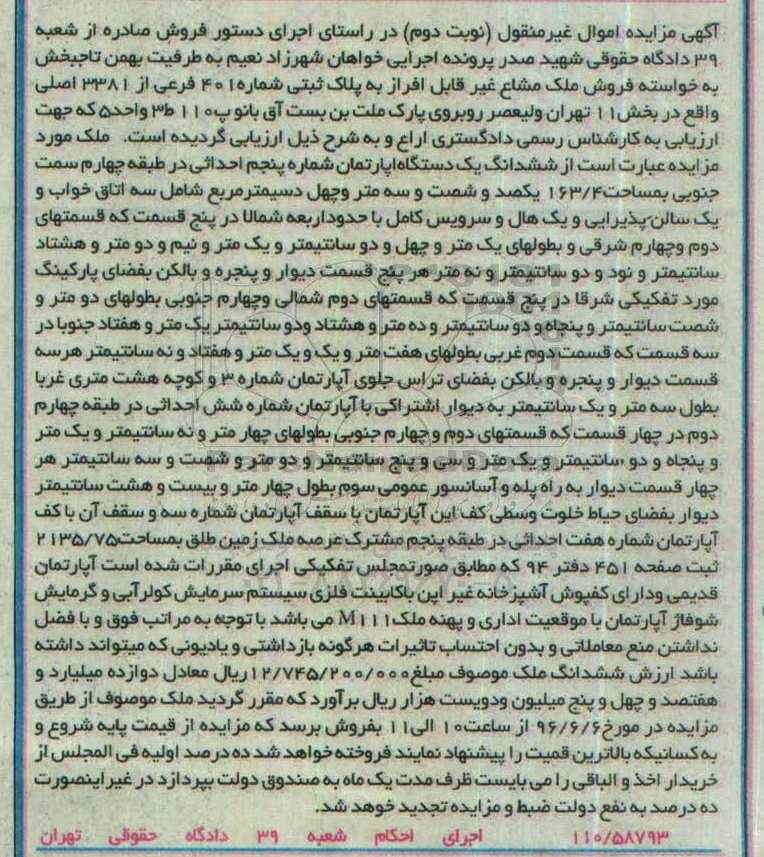 آگهی مزایده اموال غیرمنقول (نوبت دوم) در راستای اجرای دستور فروش صادره از شعبه
۳۹ دادگاه حقوقی شهید صدر پرونده اجرایی خواهان شهرزاد نعیم به طرفیت بهمن تاجبخش
به خواسته فروش ملک مشاع غیر قابل افراز به پلاک ثبتی شماره۴۰۱ فرعی از ۳۳۸۱ اصلی
واقع در بخش۱۱ تهران ولیعصر روبروی پارک ملت بن بست آق بانو پ۱۱۰ ط۳ واحد۵ که جهت
ارزیابی به کارشناس رسمی دادگستری اراع و به شرح ذیل ارزیابی گردیده است. ملک مورد
مزایده عبارت است از ششدانگ یک دستگاه اپارتمان شماره پنجم احداثی در طبقه چهارم سمت
جنوبی بمساحت۱۶۳/۴ یکصد و شصت و سه متر وچهل دسیمترمربع شامل سه اتاق خواب و
یک سالن پذیرایی و یک هال و سرویس کامل با حدوداربعه شمالا در پنج قسمت که قسمتهای
دوم وچهارم شرقی و بطولهای یک متر و چهل و دو سانتیمتر و یک متر و نیم و دو متر و هشتاد
سانتیمتر و نود و دو سانتیمتر و نه متر هر پنج قسمت دیوار و پنجره و بالکن بفضای پارکینگ
مورد تفکیکی شرقا در پنج قسمت که قسمتهای دوم شمالی وچهارم جنوبی بطولهای دو متر و
شصت سانتیمتر و پنجاه و دو سانتیمتر و ده متر و هشتاد ودو سانتیمتر یک متر و هفتاد جنوبا در
سه قسمت که قسمت دوم غربی بطولهای هفت متر و یک و یک متر و هفتاد و نه سانتیمتر هرسه
قسمت دیوار و پنجره و بالکن بفضای تراس جلوی آپارتمان شماره ۳ و کوچه هشت متری غربا
بطول سه متر و یک سانتیمتر به دیوار اشتراکی با آپارتمان شماره شش احداثی در طبقه چهارم
دوم در چهار قسمت که قسمتهای دوم و چهارم جنوبی بطولهای چهار متر و نه سانتیمتر و یک متر
و پنجاه و دو سانتیمتر و یک متر و سی و پنج سانتیمتر و دو متر و شصت و سه سانتیمتر هر
چهار قسمت دیوار به راه پله و آسانسور عمومی سوم بطول چهار متر و بیست و هشت سانتیمتر
دیوار بفضای حیاط خلوت وسطی کف این آپارتمان با سقف آپارتمان شماره سه و سقف آن با کف
آپارتمان شماره هفت احداثی در طبقه پنجم مشترک عرصه ملک زمین طلق بمساحت۲۱۳۵/۷۵
ثبت صفحه ۴۵۱ دفتر ۹۴ که مطابق صورتمجلس تفکیکی اجرای مقررات شده است آپارتمان
قدیمی ودارای کفپوش آشپزخانه غیر اپن باکابینت فلزی سیستم سرمایش کولرآبی و گرمایش
شوفاژ آپارتمان با موقعیت اداری و پهنه ملکM۱۱۱ می باشد با توجه به مراتب فوق و با فضل
نداشتن منع معاملاتی و بدون احتساب تاثیرات هرگونه بازداشتی و یادیونی که میتواند داشته
باشد ارزش ششدانگ ملک موصوف مبلغ۱۲/۷۴۵/۲۰۰/۰۰۰ریال معادل دوازده میلیارد و
هفتصد و چهل و پنج میلیون ودویست هزار ریال برآورد که مقرر گردید ملک موصوف از طریق
مزایده در مورخ۹۶/۶/۶ از ساعت۱۰ الی۱۱ بفروش برسد که مزایده از قیمت پایه شروع و
به کسانیکه بالاترین قمیت را پیشنهاد نمایند فروخته خواهد شد ده درصد اولیه فی المجلس از
خریدار اخذ و الباقی را می بایست ظرف مدت یک ماه به صندوق دولت بپردازد در غیر اینصورت
ده درصد به نفع دولت ضبط و مزایده تجدید خواهد شد.
۱۱۰/۵۸۷۹۳ اجرای احکام شعبه ۳۹ دادگاه حقوقی تهران